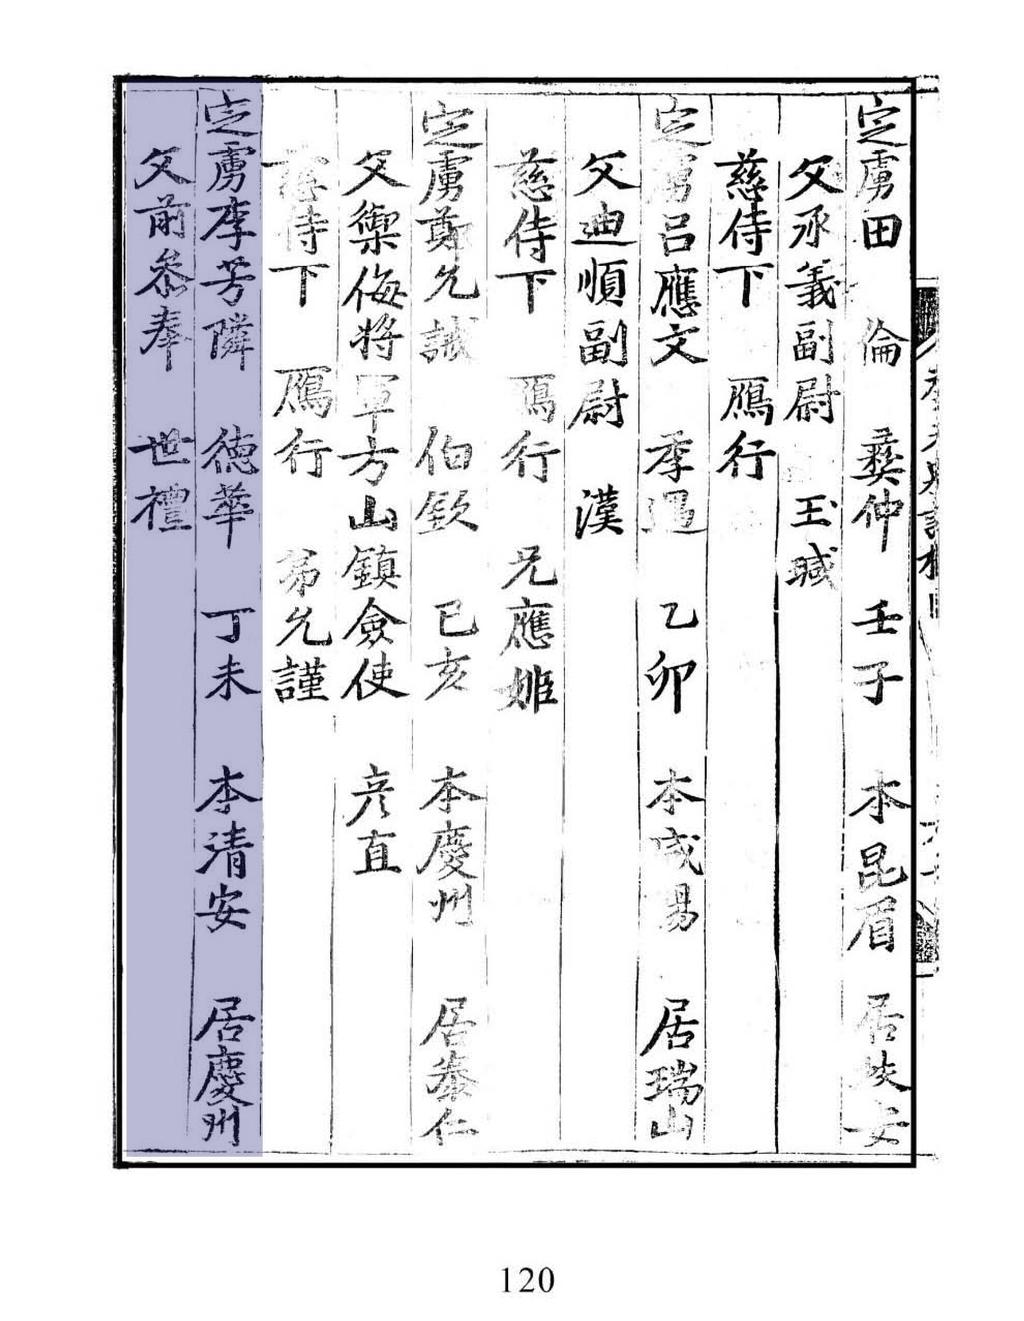 定虜田 倫 彛仲 壬子 本昆眉 居
父承義副尉 玉瑊
慈侍下 鴈行
定虜呂應文 季遇 乙卯 本咸陽 居瑞山
父迪順副尉 漢
慈侍下 鴈行 兄應姬
定虜鄭允諴 伯欽 己亥 本慶州 居泰仁
父禦侮將軍方山鎮僉使 彦直
慈侍下 鴈行 弟允謹
定虜李芳隣 德華 丁未 本清安 居慶州
父前叅奉 世禮
120